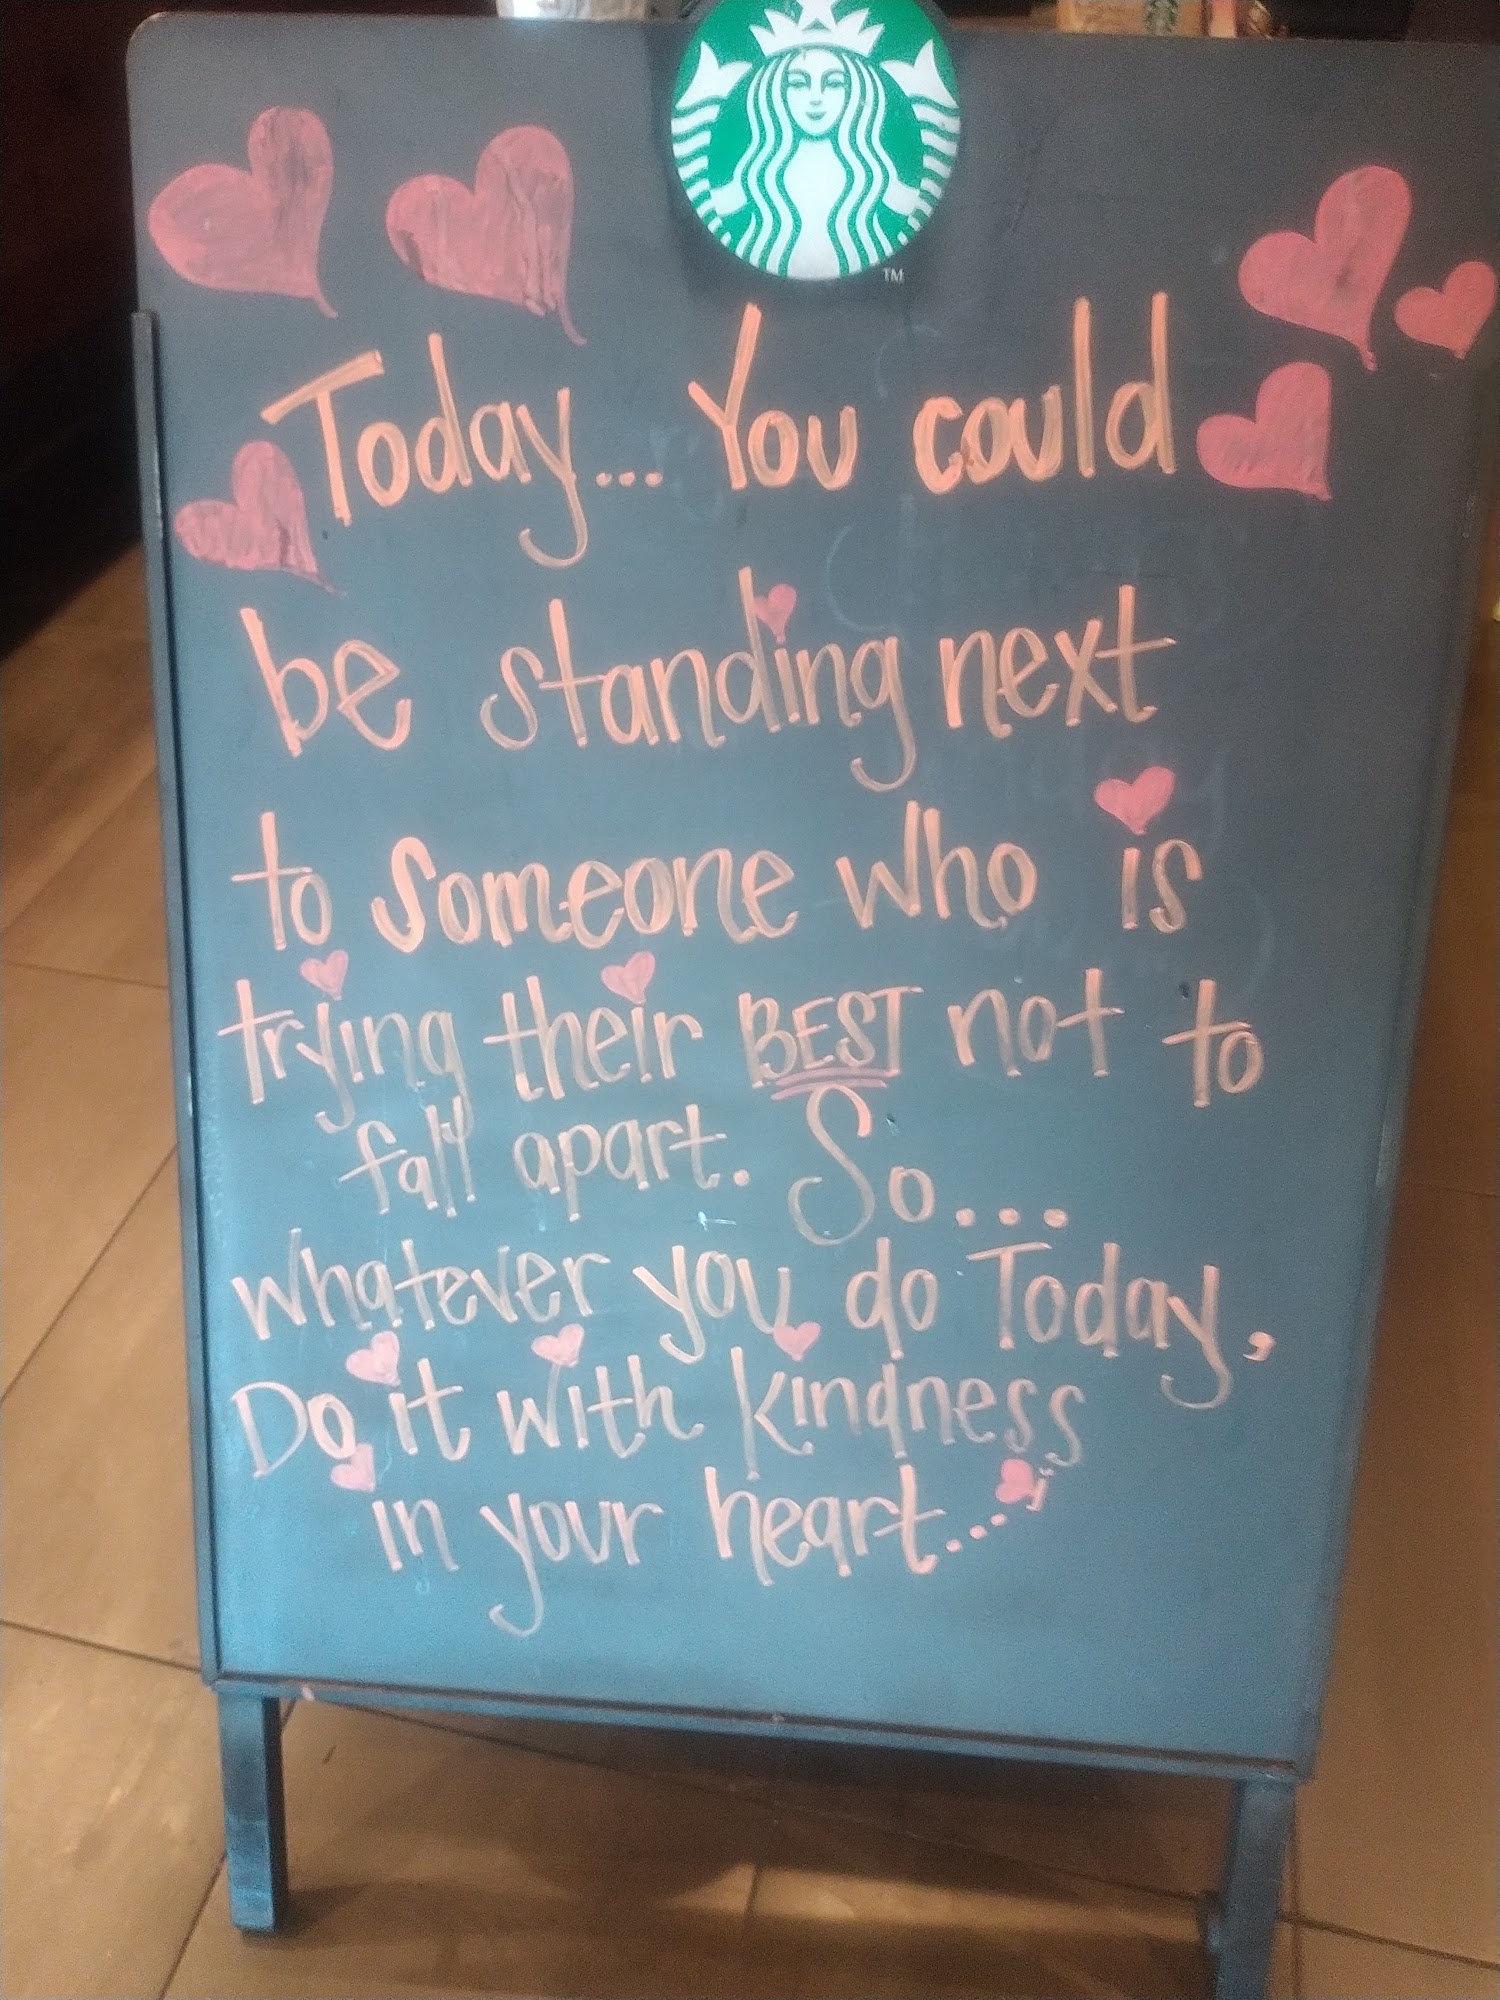 TM
Today... You could
be standing next
to someone who is
trying their BEST not to
fall apart. So...
whatever you do Today,
Do it with kindness
in your heart....